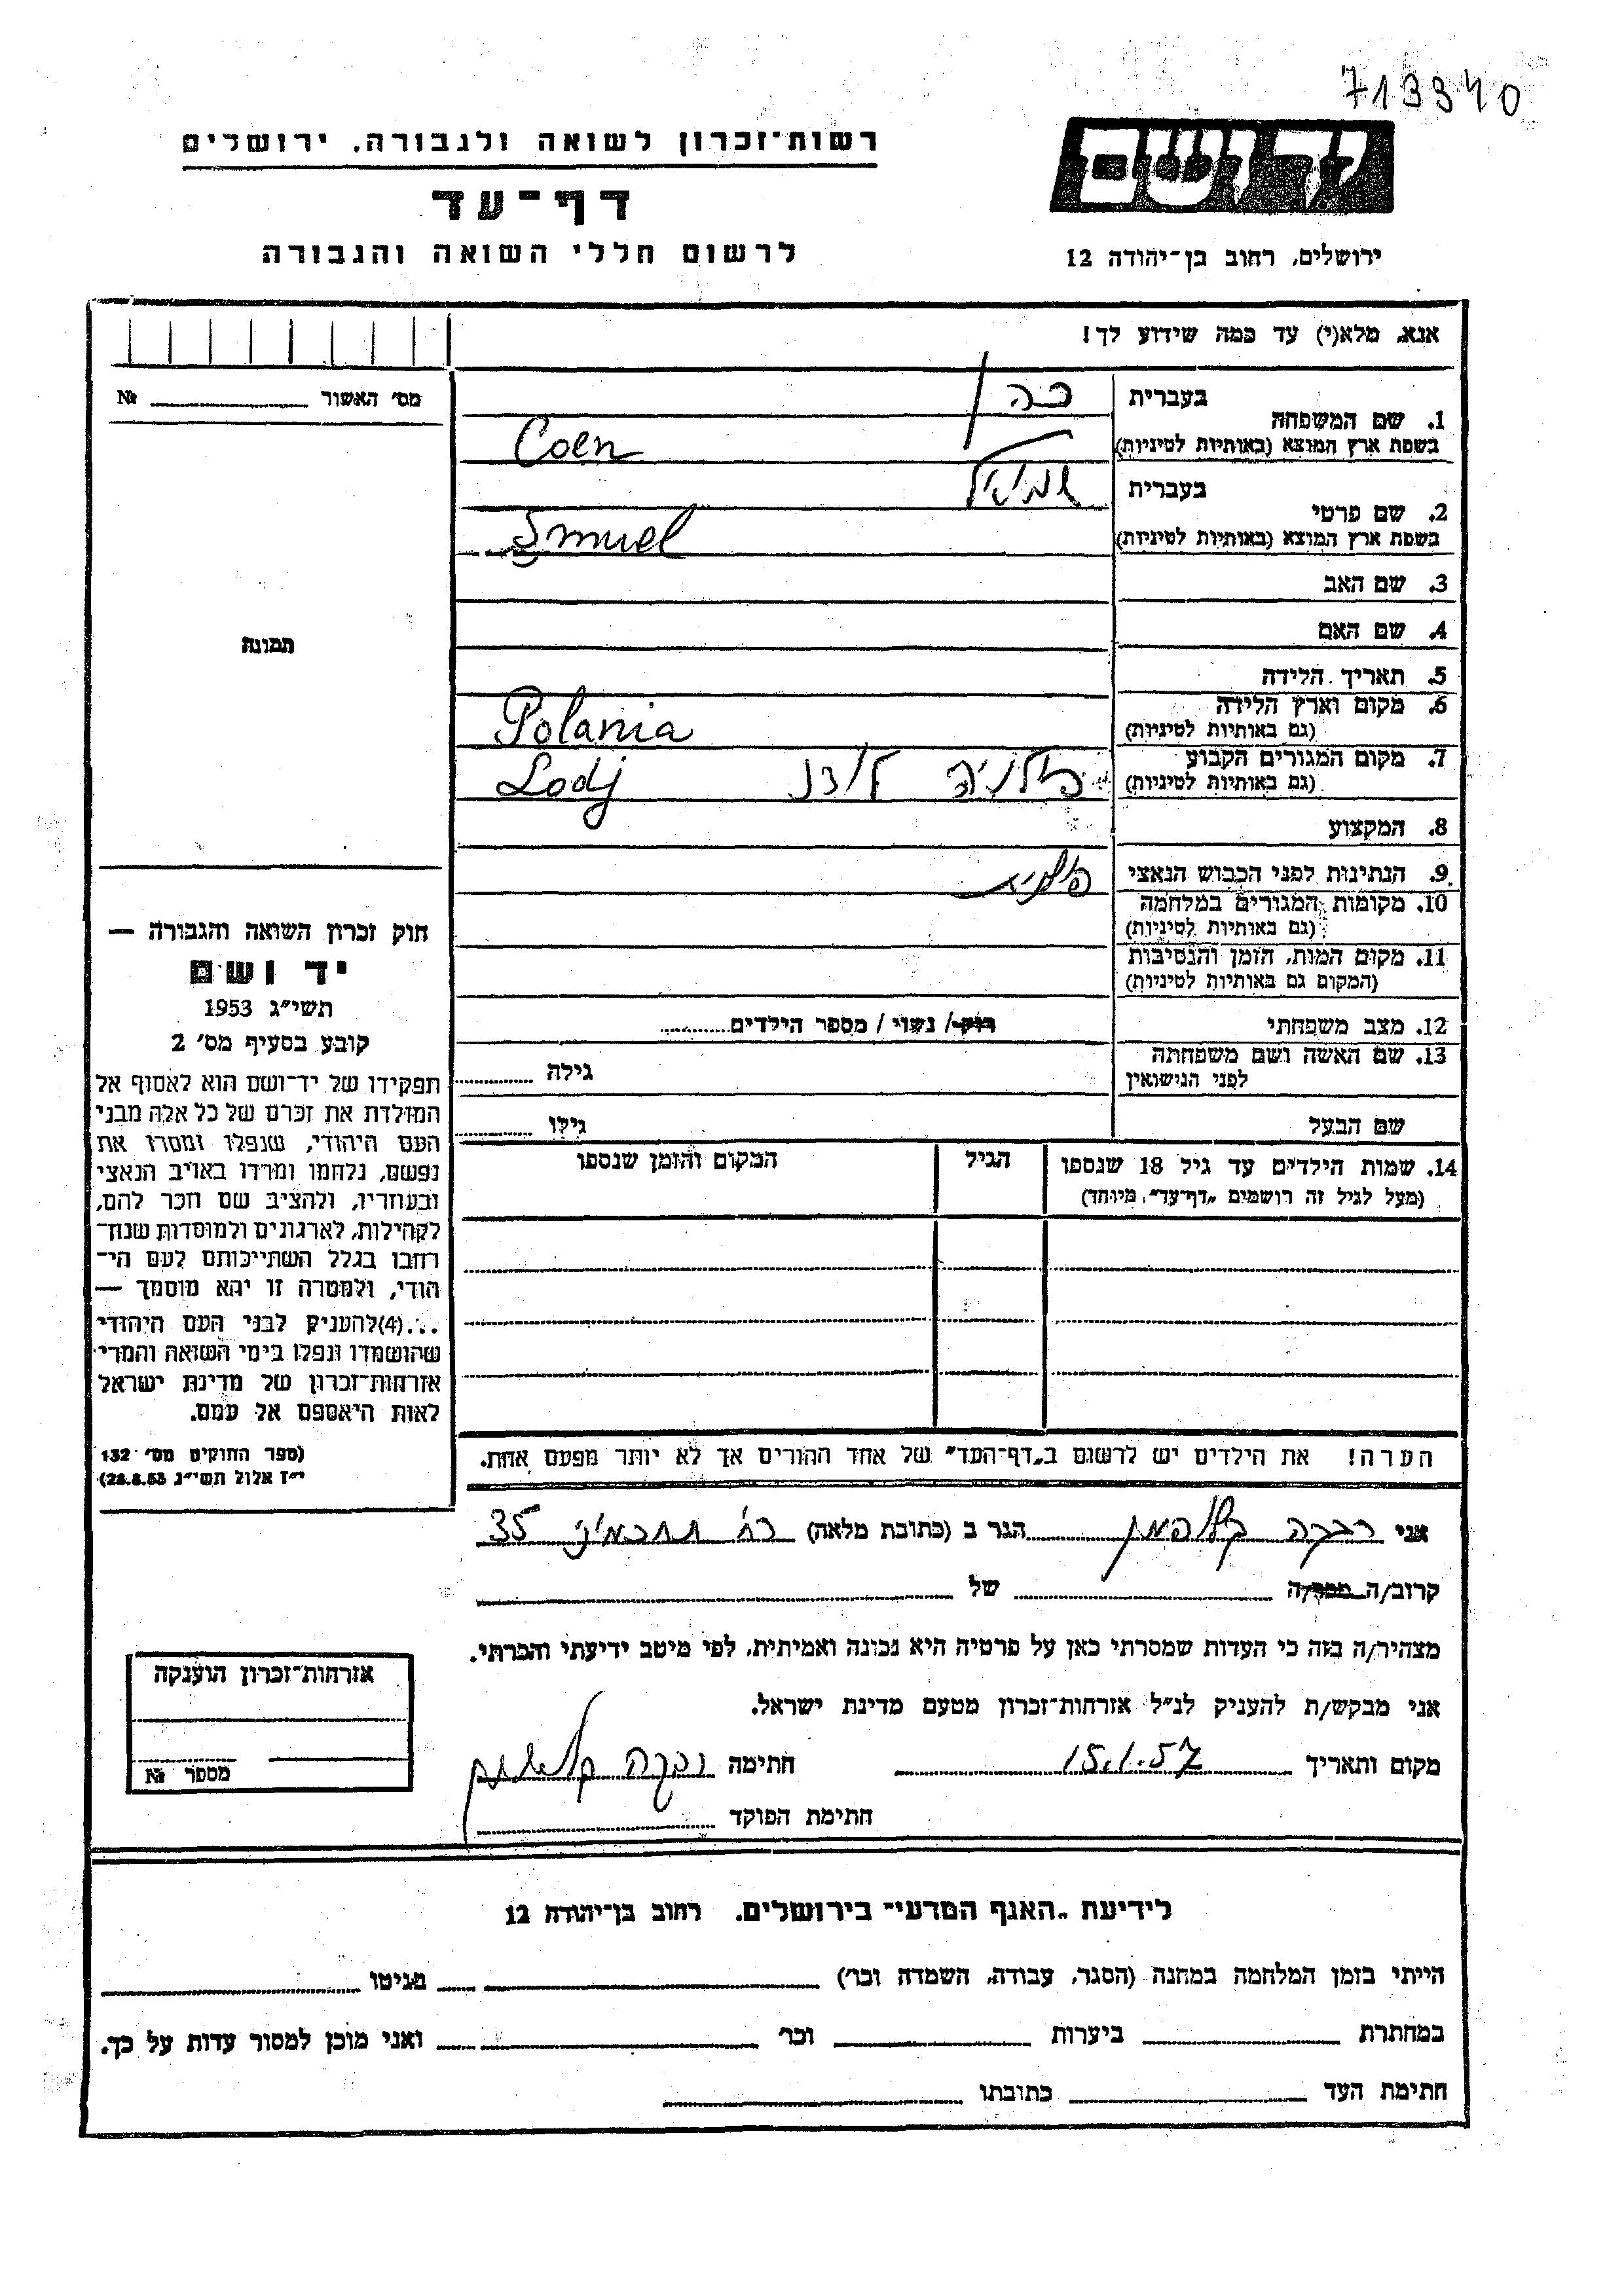 713340
רשות־זכרון לשואה ולגבורה, ירושלים
ידושם
דף־עד
לרשום חללי השואה והגבורה
ירושלים, רחוב בן־יהודה 12
אנא, מלא(י) עד כמה שידוע לך!
מס' האשור № 
1. שם המשפחה
בעברית כהן
בשפת ארץ המוצא (באותיות לטיניות) Coen
2. שם פרטי
בעברית שמואל
בשפת ארץ המוצא (באותיות לטיניות) Smuel
3. שם האב
4. שם האם
תמונה
5. תאריך הלידה
6. מקום וארץ הלידה
(גם באותיות לטיניות) Polania
7. מקום המגורים הקבוע
(גם באותיות לטיניות) פולניה לודז Lodj
8. המקצוע
9. הנתינות לפני הכבוש הנאצי
10. מקומות המגורים במלחמה
(גם באותיות לטיניות)
11. מקום המות, הזמן והנסיבות
(המקום גם באותיות לטיניות)
12. מצב משפחתי רוק/ נשוי / מספר הילדים
13. שם האשה ושם משפחתה
לפני הנישואין גילה
שם הבעל גילו
14. שמות הילדים עד גיל 18 שנספו הגיל המקום והזמן שנספו
(מעל לגיל זה רושמים „דף־עד" מיוחד)
הערה! את הילדים יש לרשום ב„דף־העד" של אחד ההורים אך לא יותר מפעם אחת.
חוק זכרון השואה והגבורה —
יד ושם
תשי"ג 1953
קובע בסעיף מס' 2
תפקידו של יד־ושם הוא לאסוף אל
המולדת את זכרם של כל אלה מבני
העם היהודי, שנפלו ומסרו את
נפשם, נלחמו ומרדו באויב הנאצי
ובעוזריו, ולהציב שם וזכר להם,
לקהילות, לארגונים ולמוסדות שנח־
רחבו בגלל השתייכותם לעם הי־
הודי, ולמטרה זו יהא מוסמך —
...(4)להעניק לבני העם היהודי
שהושמדו ונפלו בימי השואה והמרי
אזרחות־זכרון של מדינת ישראל
לאות היאספם אל עמם.
(ספר החוקים מס' 132
י"ז אלול תשי"ג 28.8.53)
אני רבקה קלופמן הגר ב (כתובת מלאה) רח' תחכמוני 35
קרוב/ה מכר/ה של
מצהיר/ה בזה כי העדות שמסרתי כאן על פרטיה היא נכונה ואמיתית, לפי מיטב ידיעתי והכרתי.
אני מבקש/ת להעניק לנ"ל אזרחות־זכרון מטעם מדינת ישראל.
מקום ותאריך 15.1.57 חתימה רבקה
חתימת הפוקד
אזרחות־זכרון הוענקה
מספר №
לידיעת „האגף המדעי" בירושלים. רחוב בן־יהודה 12
הייתי בזמן המלחמה במחנה (הסגר, עבודה, השמדה וכו') בגיטו
במחתרת ביערות וכו' ואני מוכן למסור עדות על כך.
חתימת העד כתובתו